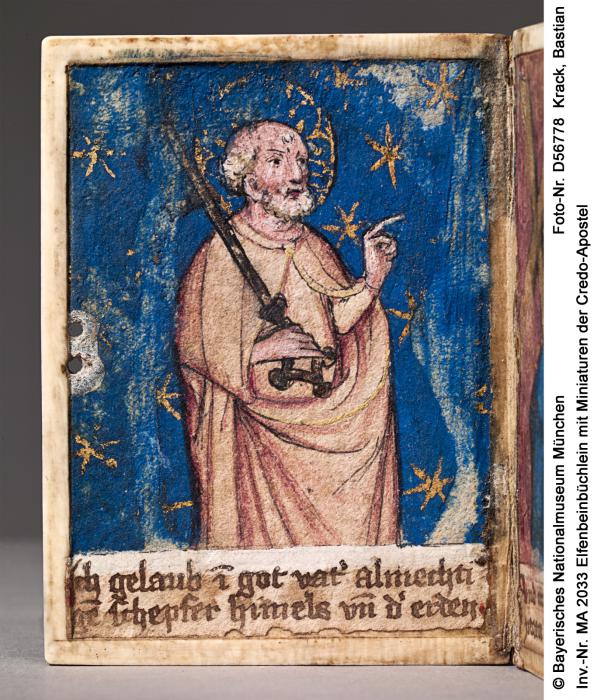 ich gelaub ī got vat' almechti
gē schepfer himels vn̄ d' erden
© Bayerisches Nationalmuseum München Foto-Nr. D56778 Krack, Bastian
Inv.-Nr. MA 2033 Elfenbeinbüchlein mit Miniaturen der Credo-Apostel